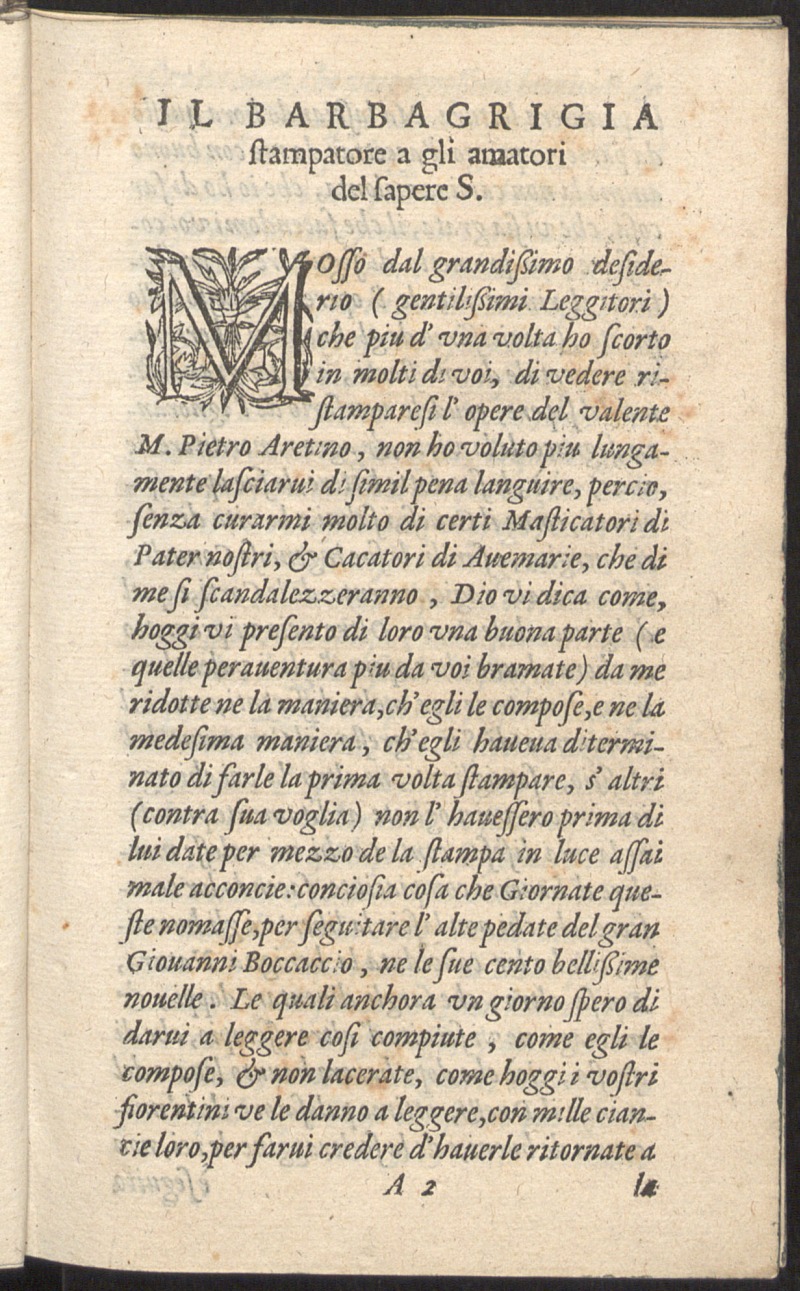 IL BARBAGRIGIA
ſtampatore a gli amatori
del ſapere S.
MOſſo dal grandiſſimo deſide-
rio ( gentiliſſimi Leggitori )
che piu d' vna volta ho ſcorto
in molti di voi, di vedere ri-
ſtampareſi l' opere del valente
M. Pietro Aretino, non ho voluto piu lunga-
mente laſciarui di ſimil pena languire, percio,
ſenza curarmi molto di certi Maſticatori di
Pater noſtri, & Cacatori di Auemarie, che di
me ſi ſcandalezzeranno, Dio vi dica come,
hoggi vi preſento di loro vna buona parte (e
quelle perauentura piu da voi bramate) da me
ridotte ne la maniera, ch' egli le compoſe, e ne la
medeſima maniera, ch' egli haueua ditermi-
nato di farle la prima volta ſtampare, ſ' altri
(contra ſua voglia) non l' haueſſero prima di
lui date per mezzo de la ſtampa in luce aſſai
male acconcie: concioſia coſa che Giornate que-
ſte nomaſſe, per ſeguitare l' alte pedate del gran
Giouanni Boccaccio, ne le ſue cento belliſſime
nouelle. Le quali anchora vn giorno ſpero di
darui a leggere coſi compiute, come egli le
compoſe, & non lacerate, come hoggi i voſtri
fiorentini ve le danno a leggere, con mille cian-
cie loro, per farui credere d' hauerle ritornate a
A 2 la